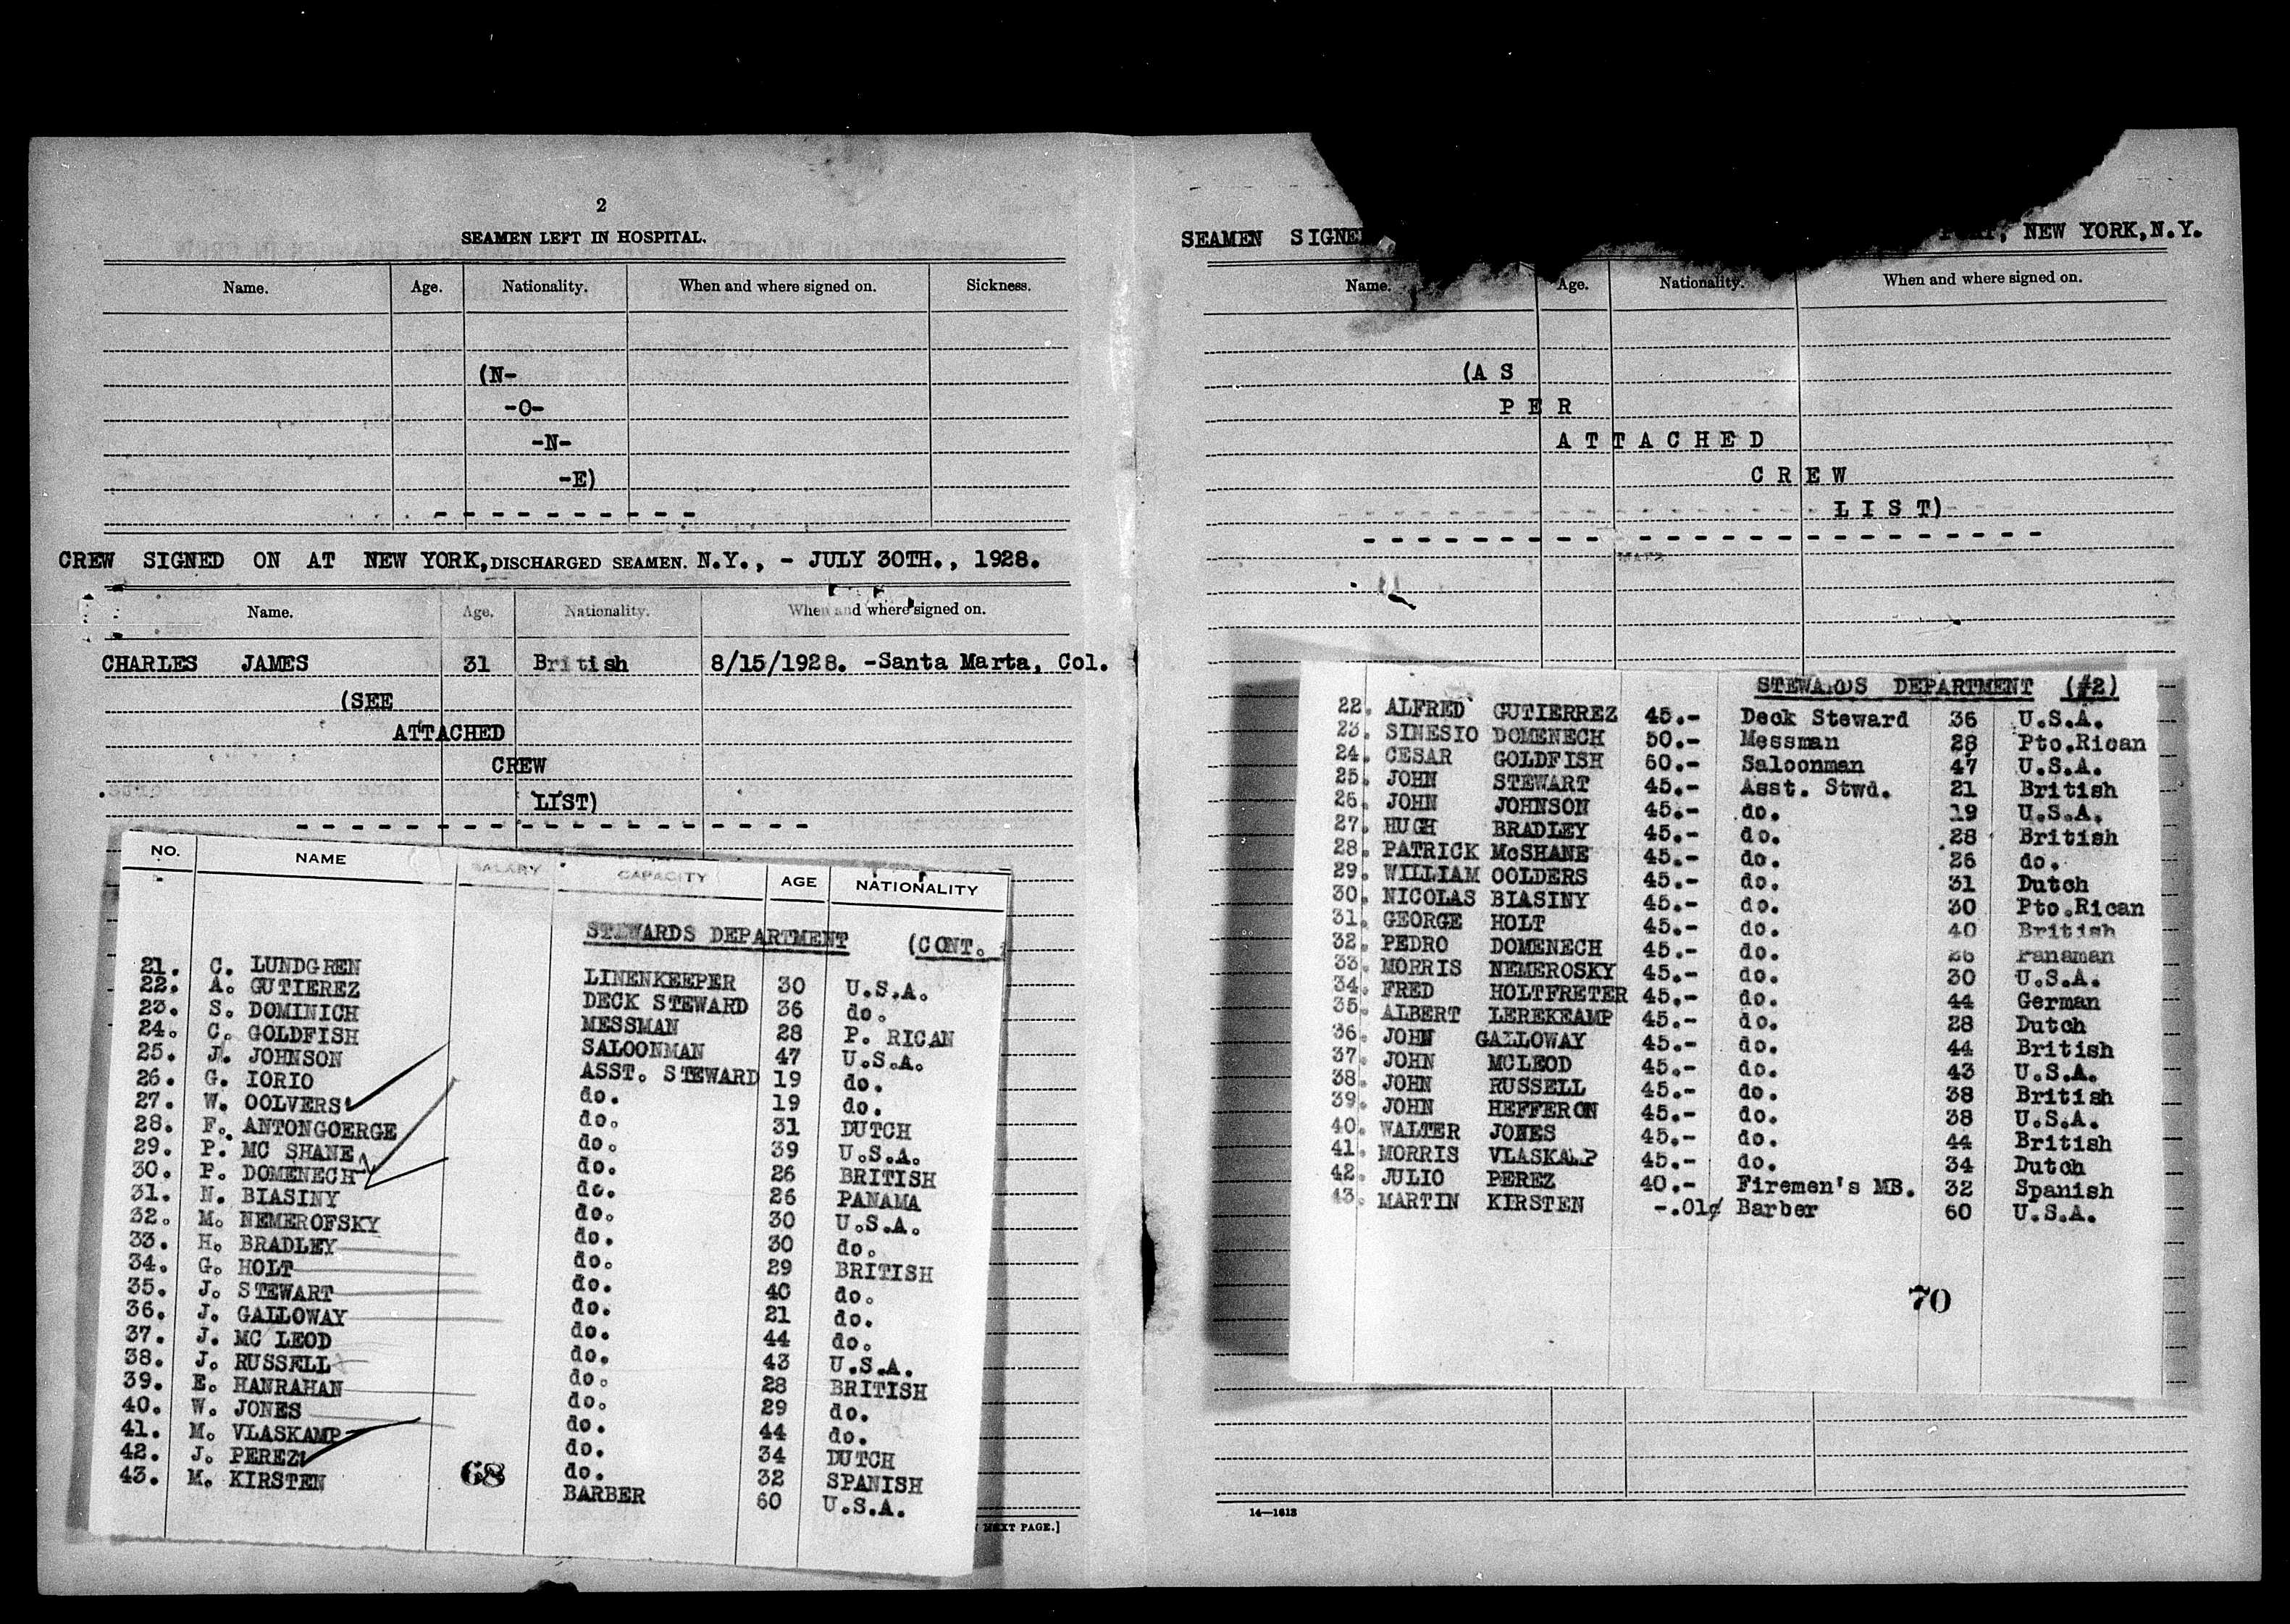 2
SEAMEN LEFT IN HOSPITAL.
Name. Age. Nationality. When and where signed on. Sickness.
(N-
-O-
-N-
-E)
CREW SIGNED ON AT NEW YORK, DISCHARGED SEAMEN. N.Y., - JULY 30TH., 1928.
Name. Age. Nationality. When and where signed on.
CHARLES JAMES 31 British 8/15/1928. -Santa Marta, Col.
(SEE
ATTACHED
CREW
LIST)
NO. NAME SALARY CAPACITY AGE NATIONALITY
STEWARDS DEPARTMENT (CONT.
21. C. LUNDGREN LINENKEEPER 30 U.S.A.
22. A. GUTIEREZ DECK STEWARD 36 do.
23. S. DOMINICH MESSMAN 28 P. RICAN
24. C. GOLDFISH SALOONMAN 47 U.S.A.
25. J. JOHNSON ASST. STEWARD 19 do.
26. G. IORIO do. 19 do.
27. W. OOLVERS do. 31 DUTCH
28. F. ANTONGOERGE do. 39 U.S.A.
29. P. MC SHANE do. 26 BRITISH
30. P. DOMENECH do. 26 PANAMA
31. N. BIASINY do. 30 U.S.A.
32. M. NEMEROFSKY do. 30 do.
33. H. BRADLEY do. 29 BRITISH
34. G. HOLT do. 40 do.
35. J. STEWART do. 21 do.
36. J. GALLOWAY do. 44 do.
37. J. MC LEOD do. 43 U.S.A.
38. J. RUSSELL do. 28 BRITISH
39. E. HANRAHAN do. 29 do.
40. W. JONES do. 44 do.
41. M. VLASKAMP do. 34 DUTCH
42. J. PEREZ do. 32 SPANISH
43. M. KIRSTEN BARBER 60 U.S.A.
68
NEXT PAGE.]
SEAMEN SIGNED NEW YORK, N.Y.
Name. Age. Nationality. When and where signed on.
(A S
P E R
A T T A C H E D
C R E W
L I S T)
STEWARDS DEPARTMENT (#2)
22. ALFRED GUTIERREZ 45.- Deck Steward 36 U.S.A.
23. SINESIO DOMENECH 50.- Messman 28 Pto.Rican
24. CESAR GOLDFISH 60.- Saloonman 47 U.S.A.
25. JOHN STEWART 45.- Asst. Stwd. 21 British
26. JOHN JOHNSON 45.- do. 19 U.S.A.
27. HUGH BRADLEY 45.- do. 28 British
28. PATRICK McSHANE 45.- do. 26 do.
29. WILLIAM OOLDERS 45.- do. 31 Dutch
30. NICOLAS BIASINY 45.- do. 30 Pto.Rican
31. GEORGE HOLT 45.- do. 40 British
32. PEDRO DOMENECH 45.- do. 26 Panaman
33. MORRIS NEMEROSKY 45.- do. 30 U.S.A.
34. FRED HOLTFRETER 45.- do. 44 German
35. ALBERT LEREKEAMP 45.- do. 28 Dutch
36. JOHN GALLOWAY 45.- do. 44 British
37. JOHN MCLEOD 45.- do. 43 U.S.A.
38. JOHN RUSSELL 45.- do. 38 British
39. JOHN HEFFERON 45.- do. 38 U.S.A.
40. WALTER JONES 45.- do. 44 British
41. MORRIS VLASKAMP 45.- do. 34 Dutch
42. JULIO PEREZ 40.- Firemen's MB. 32 Spanish
43. MARTIN KIRSTEN -.01¢ Barber 60 U.S.A.
70
14—1613